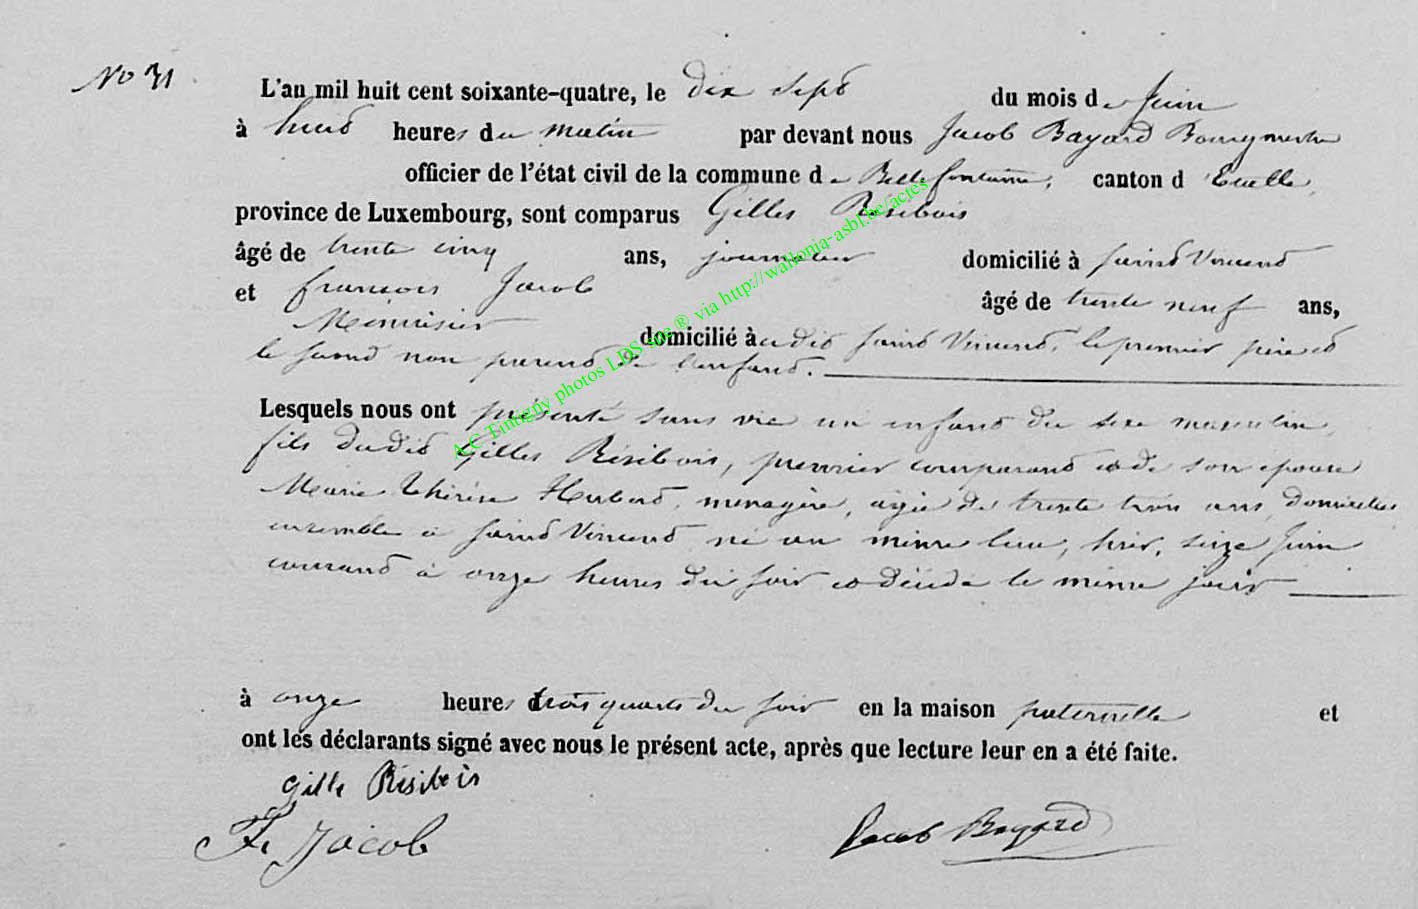 No 31
L'an mil huit cent soixante-quatre, le dix sept du mois de Juin
à huit heures du matin par devant nous Jacob Bayard Bourgmestre
officier de l'état civil de la commune de Bellefontaine, canton d'Etalle,
province de Luxembourg, sont comparus Gilles Résibois
âgé de trente cinq ans, journalier domicilié à Saint Vincent
et françois Jacob âgé de trente neuf ans,
Menuisier domicilié audit Saint Vincent, le premier père et
le second non parent de l'enfant.
Lesquels nous ont présenté sans vie un enfant du sexe masculin,
fils dudit Gilles Résibois, premier comparant et de son épouse
Marie Thérèse Hubert, menagère, agée de trente trois ans, domiciliés
ensemble à Saint Vincent né au même lieu, hier, seize Juin
courant à onze heures du soir et décédé le même jour
à onze heures trois quarts du soir en la maison paternelle et
ont les déclarants signé avec nous le présent acte, après que lecture leur en a été faite.
Gille Résibois
F. Jacob Jacob Bayard
A.C Tintigny photos LDS snc ® via http://wallonia-asbl.be/actes